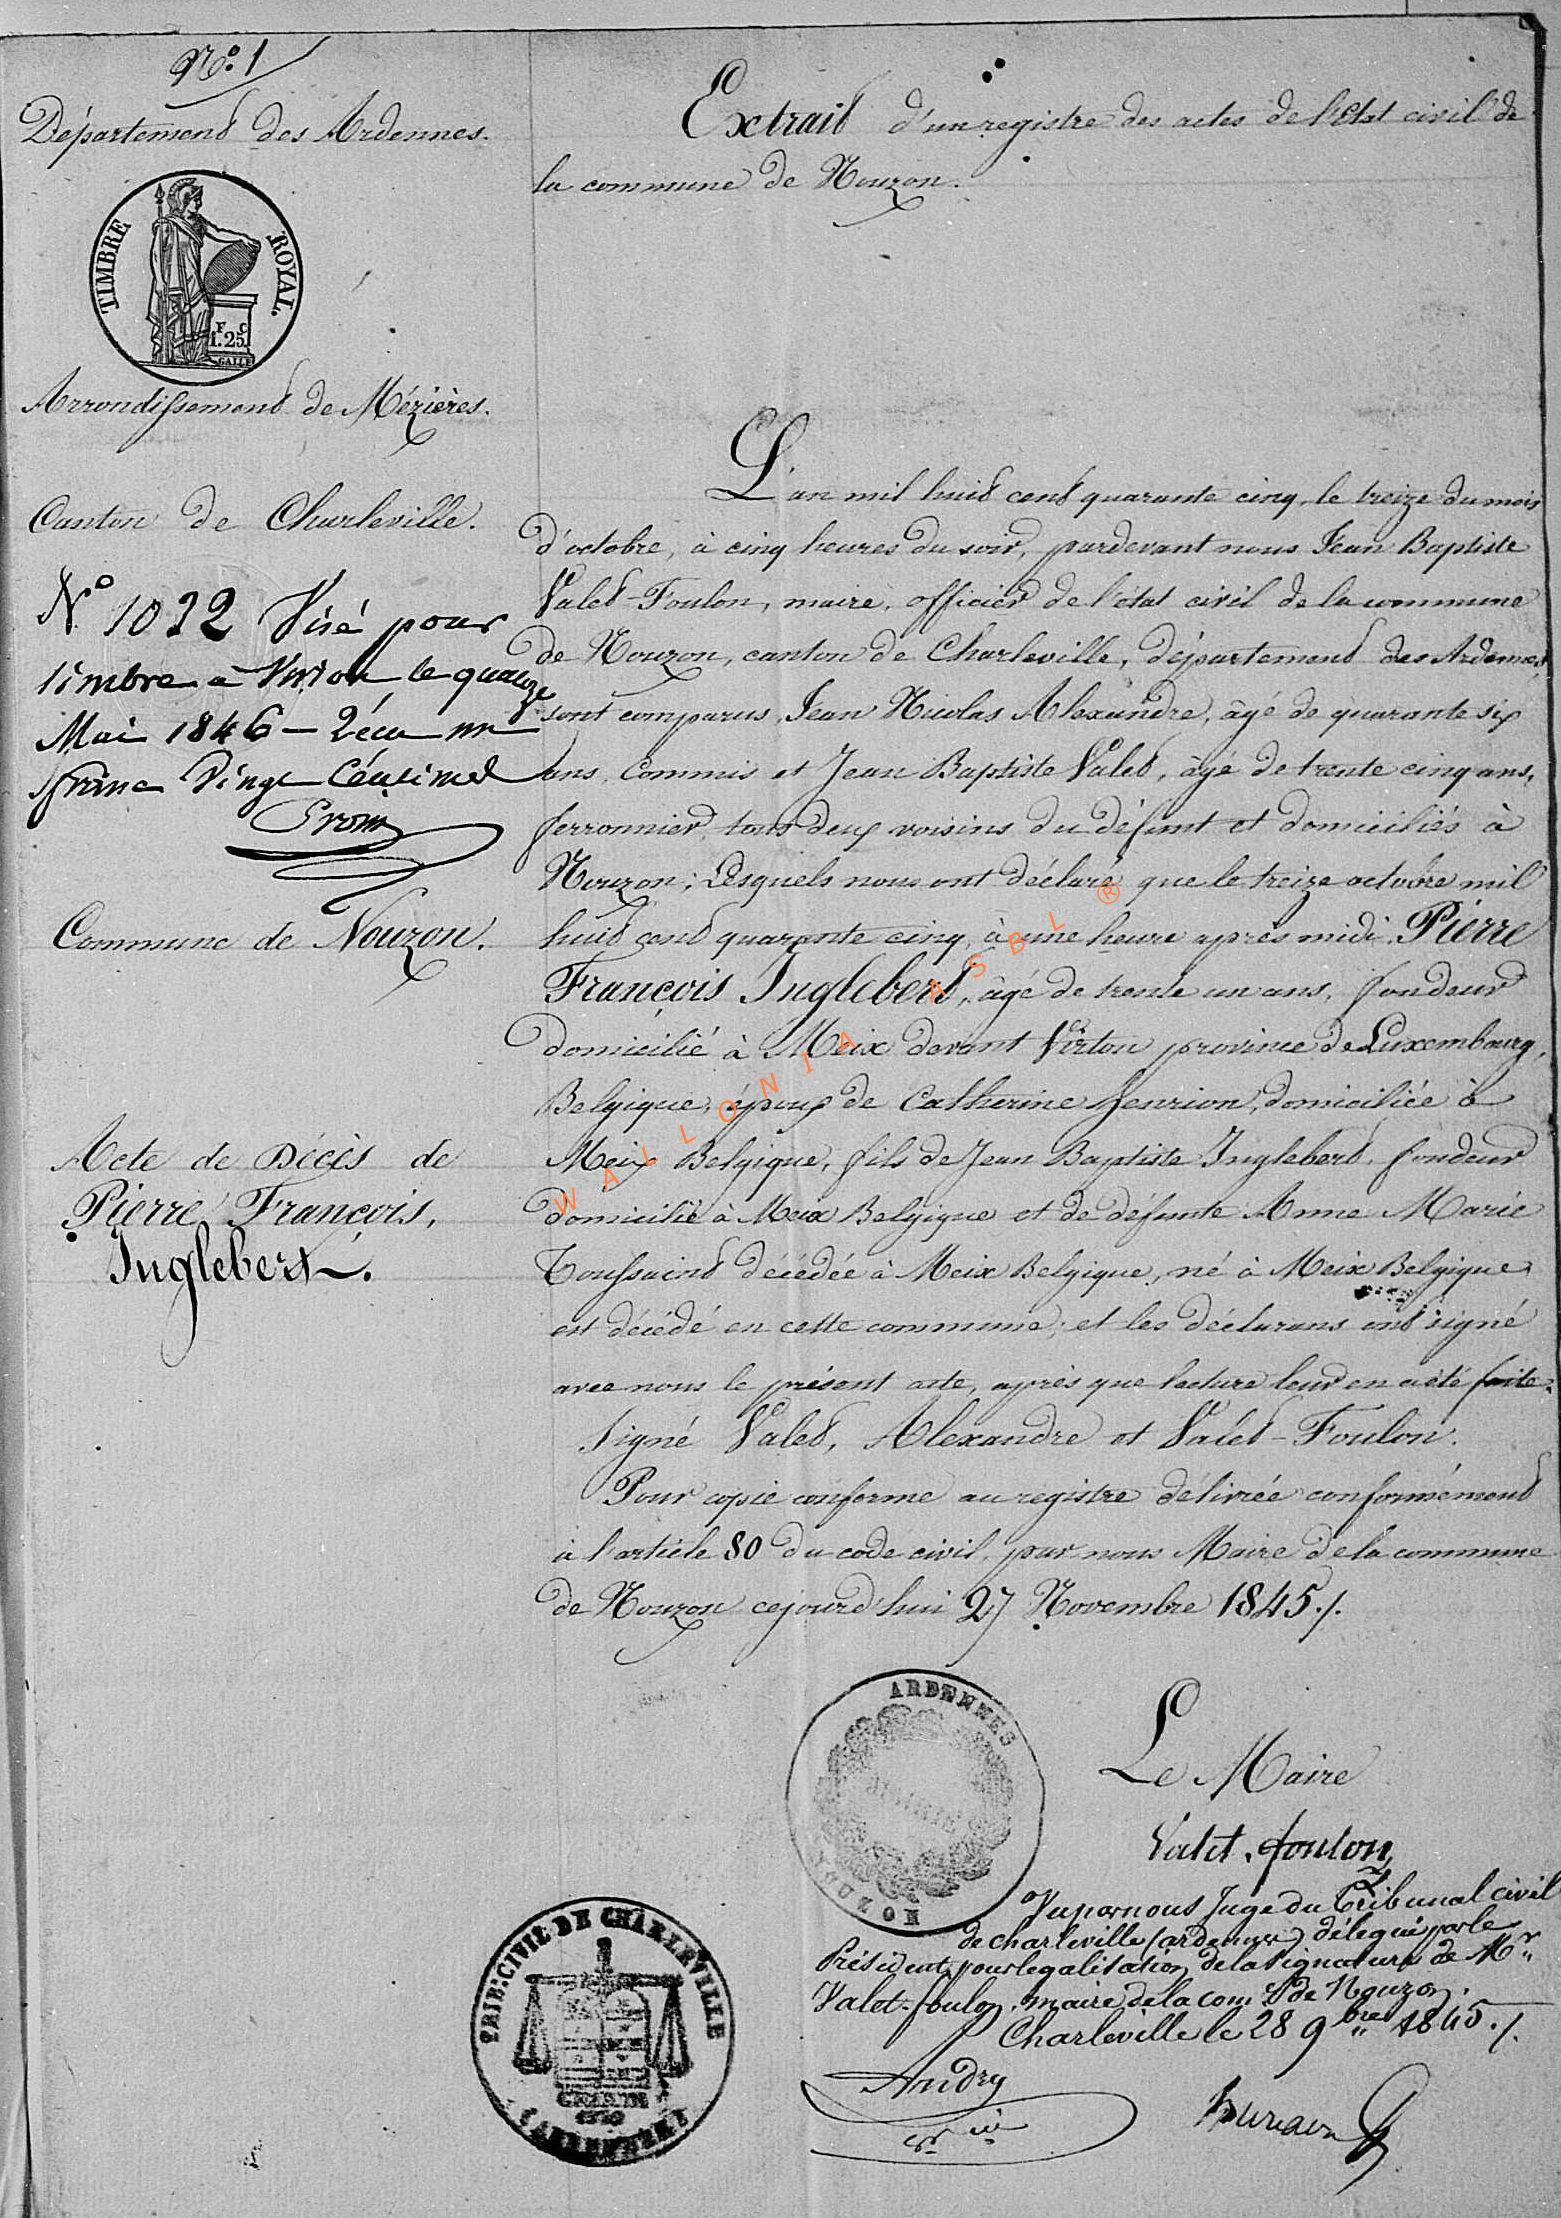 N.o 1
Département des Ardennes.
TIMBRE ROYAL.
F C
1.25.
GALLE
Arrondissement de Mézières.
Canton de Charleville.
No 1022 Visé pour
timbre a Virton le quatorze
Mai 1846 – Reçu un
franc Vingt Centimes
Commune de Nouzon.
Acte de Décès de
Pierre François,
Inglebert.
Extrait d'un registre des actes de l'état civil de
la commune de Nouzon.
L'an mil huit cent quarante cinq, le treize du mois
d'octobre, à cinq heures du soir, pardevant nous Jean Baptiste
Valet-Foulon, maire, officier de l'état civil de la commune
de Nouzon, canton de Charleville, département des Ardennes,
sont comparus, Jean Nicolas Alexandre, âgé de quarante six
ans, Commis et Jean Baptiste Valet, âgé de trente cinq ans,
ferronnier, tous deux voisins du défunt et domiciliés à
Nouzon; Lesquels nous ont déclaré que le treize octobre mil
huit cent quarante cinq, à une heure après midi, Pierre
François Inglebert, âgé de trente un ans, fondeur
domicilié à Meix devant Virton province de Luxembourg,
Belgique, époux de Catherine Henrion, domiciliée à
Meix Belgique, fils de Jean Baptiste Inglebert, fondeur
domicilié à Meix Belgique et de défunte Anne Marie
Toussaint décédée à Meix Belgique, né à Meix Belgique
est décédé en cette commune; et les déclarans ont signé
avec nous le présent acte, après que lecture leur en a été faite.
Signé Valet, Alexandre et Valet-Foulon.
Pour copie conforme au registre délivrée conformément
à l'article 80 du code civil, par nous Maire de la commune
de Nouzon cejourd'hui 27 Novembre 1845./.
WALLONIA ASBL ®
ARDENNES
MAIRIE
NOUZON
Le Maire
Valet-foulon
Vu par nous Juge du Tribunal civil
de charleville (ardennes) délegué par le
Président, pour legalisation de la signature de Mr
Valet-foulon, maire de la come de Nouzon.
Charleville le 28 9bre 1845./.
Andry
TRIB: CIVIL DE CHARLEVILLE